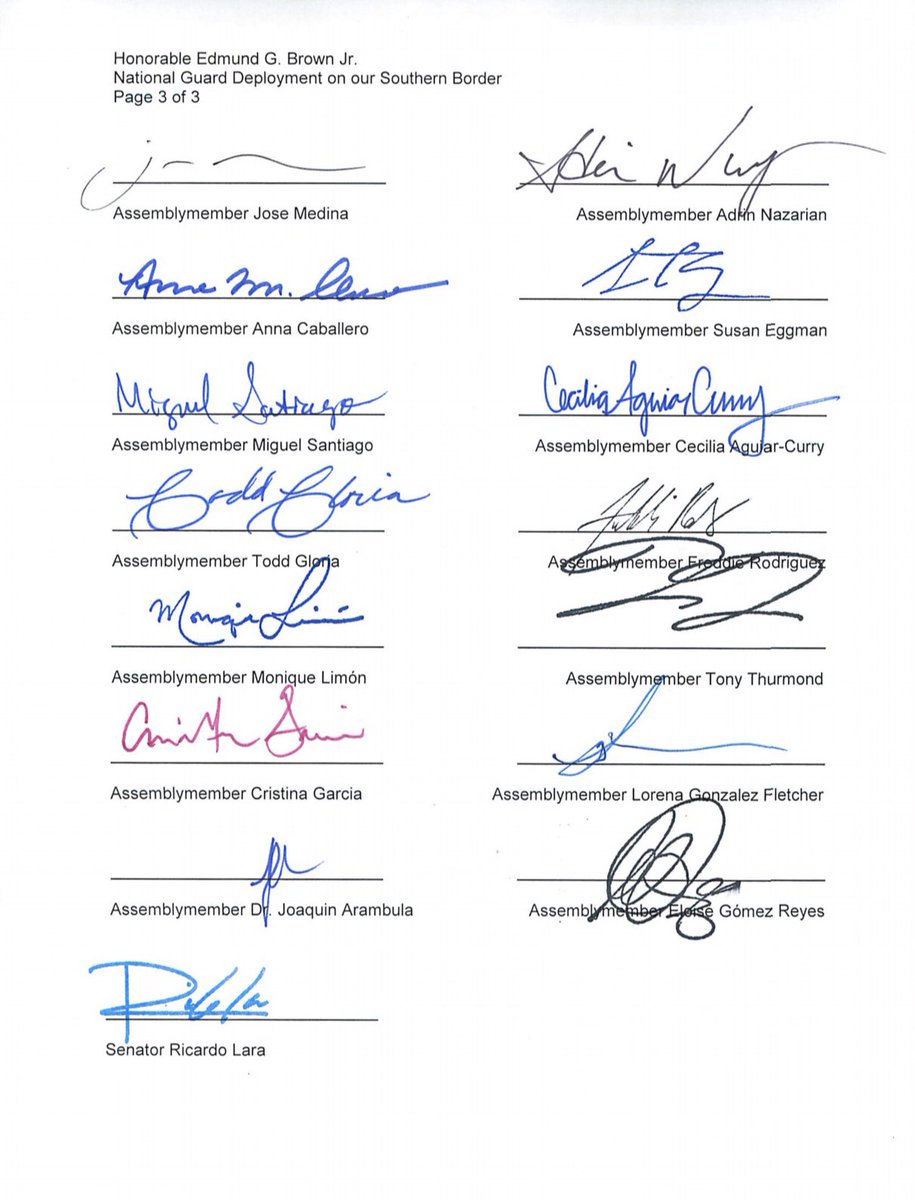 Honorable Edmund G. Brown Jr.
National Guard Deployment on our Southern Border
Page 3 of 3
Assemblymember Jose Medina
Assemblymember Adrin Nazarian
Anna M.
Assemblymember Anna Caballero
Assemblymember Susan Eggman
Miguel Santiago
Cecilia Aguiar Curry
Assemblymember Miguel Santiago
Assemblymember Cecilia Aguiar-Curry
Todd Gloria
Assemblymember Todd Gloria
Assemblymember Freddie Rodriguez
Monique Limón
Assemblymember Monique Limón
Assemblymember Tony Thurmond
Assemblymember Cristina Garcia
Assemblymember Lorena Gonzalez Fletcher
Assemblymember Dr. Joaquin Arambula
Assemblymember Eloise Gómez Reyes
Senator Ricardo Lara